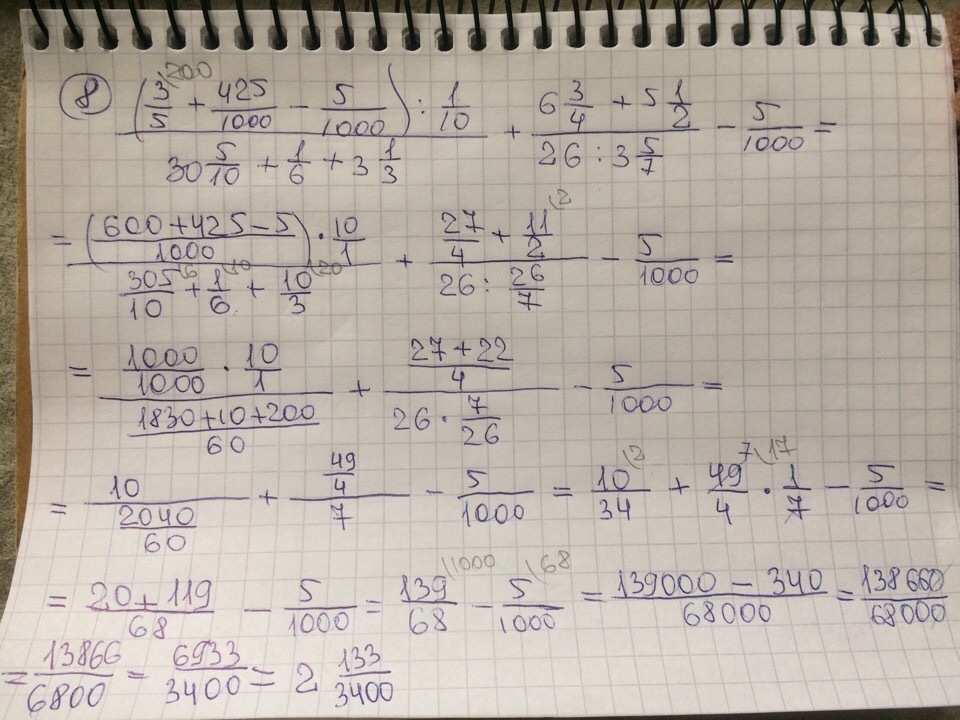 ⑧ ((3/5)\200 + 425/1000 − 5/1000) : 1/10 / (30 5/10 + 1/6 + 3 1/3) + (6 3/4 + 5 1/2) / (26 : 3 5/7) − 5/1000 =
= ((600+425−5)/1000) · 10/1 / ((305/10)\6 + (1/6)\10 + (10/3)\20) + (27/4 + (11/2)\2) / (26 : 26/7) − 5/1000 =
= (1000/1000 · 10/1) / ((1830+10+200)/60) + ((27+22)/4) / (26 · 7/26) − 5/1000 =
= 10 / (2040/60) + (49/4) / 7 − 5/1000 = (10/34)\2 + (49 7\17)/4 · 1/7 − 5/1000 =
= (20+119)/68 − 5/1000 = (139/68)\1000 − (5/1000)\68 = (139000 − 340)/68000 = 138660/68000
= 13866/6800 = 6933/3400 = 2 133/3400